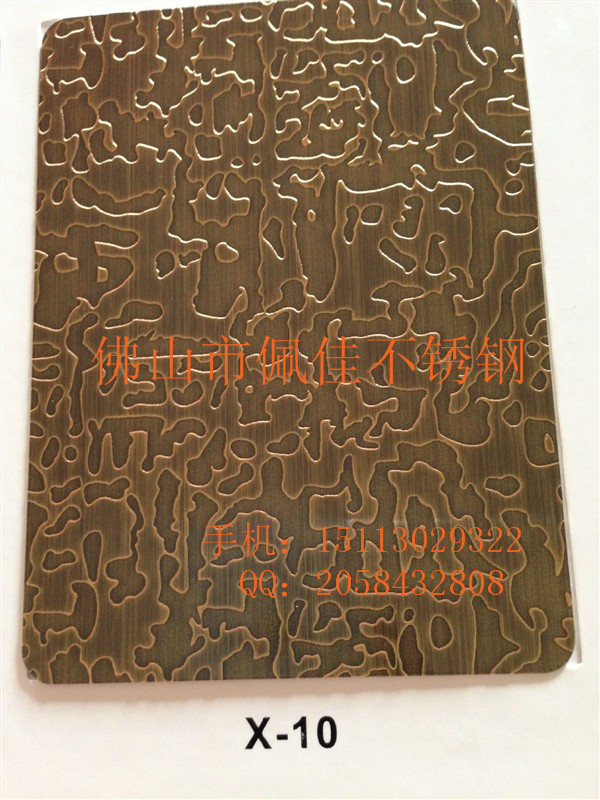 佛山市佩佳不锈钢
手机：15113029322
QQ：2058432808
X-10